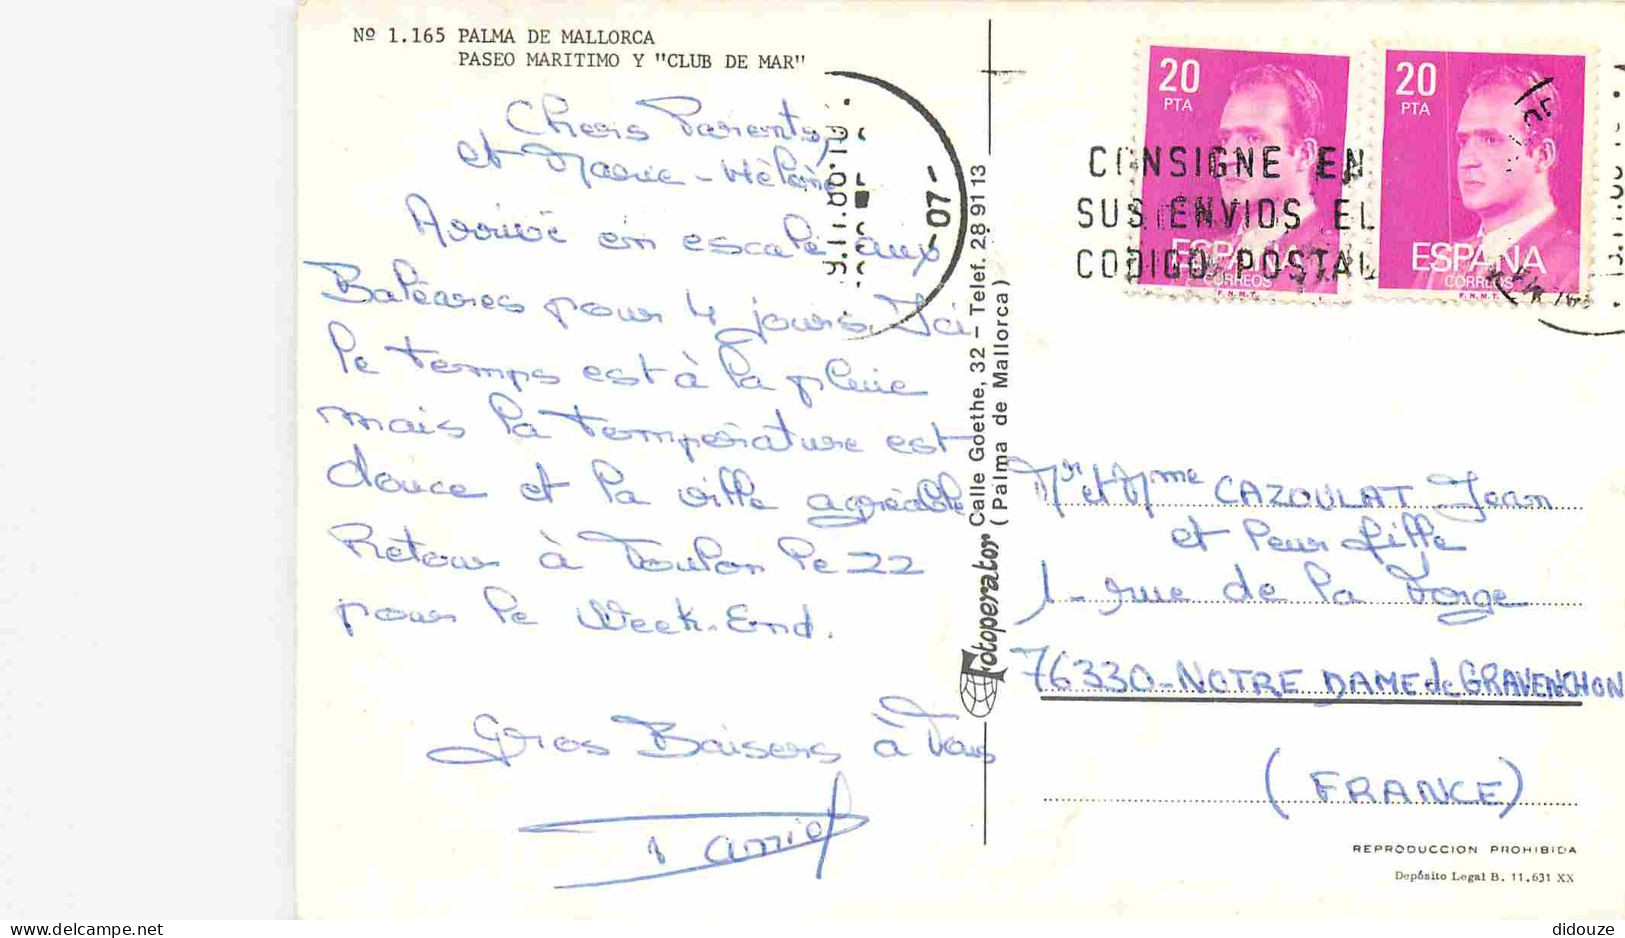 Nº 1.165 PALMA DE MALLORCA
PASEO MARITIMO Y "CLUB DE MAR"
Chers Parents,
et Marie-Hélène
Arrivé en escale aux
Baléares pour 4 jours. Ici
le temps est à la pluie
mais la température est
douce et la ville agréable
Retour à Toulon le 22
pour le Week-End.
Gros Baisers à Vous
Daniel
-07-
Fotoperator Calle Goethe, 32 - Telef. 28 91 13
(Palma de Mallorca)
20
PTA
ESPAÑA
CORREOS
F.N.M.T.
20
PTA
ESPAÑA
CORREOS
F.N.M.T.
CONSIGNE EN
SUS ENVIOS EL
CODIGO POSTAL
Mr et Mme CAZOULAT Jean
et Leur fille
1- rue de la Forge
76330-NOTRE DAME de GRAVENCHON
(FRANCE)
REPRODUCCION PROHIBIDA
Depósito Legal B. 11.631 XX
delcampe.net
didouze